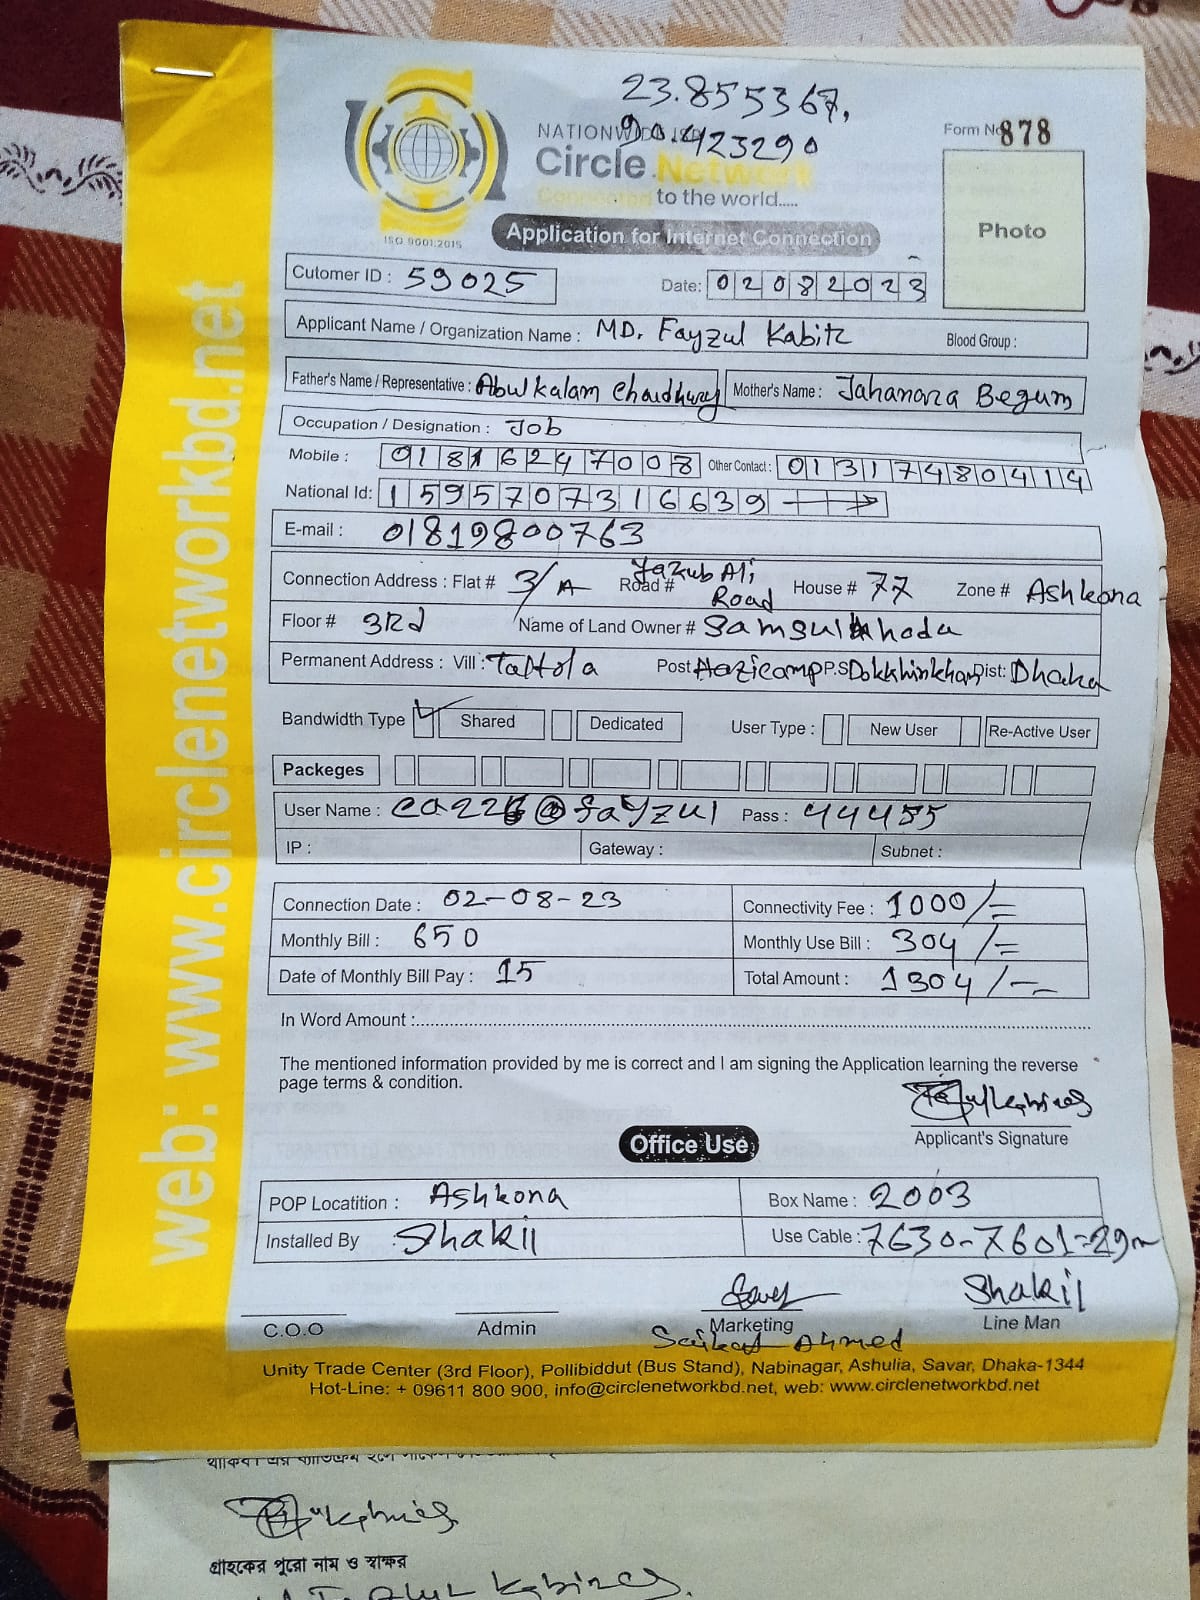 23.855367,
90.423290
NATIONWIDE ISP
Circle Network
Connected to the world.....
ISO 9001:2015
Form No 878
Photo
Application for Internet Connection
Cutomer ID : 59025
Date: 02082023
Applicant Name / Organization Name : MD. Fayzul Kabir
Blood Group :
Father's Name / Representative : Abul Kalam Chaudhury
Mother's Name : Jahanara Begum
Occupation / Designation : Job
Mobile : 01816247008
Other Contact : 01317480414
National Id: 1595707316639
E-mail : 01819800763
Connection Address : Flat # 3/A Road # Yakub Ali Road House # 77 Zone # Ashkona
Floor # 3Rd Name of Land Owner # Samsul hoda
Permanent Address : Vill : Taltola Post Hazicamp P.S Dokkhinkhan Dist: Dhaka
Bandwidth Type Shared Dedicated User Type : New User Re-Active User
Packeges
User Name : ca226@fayzul Pass : 44455
IP : Gateway : Subnet :
Connection Date : 02-08-23 Connectivity Fee : 1000/=
Monthly Bill : 650 Monthly Use Bill : 304/=
Date of Monthly Bill Pay : 15 Total Amount : 1304/=
In Word Amount :
The mentioned information provided by me is correct and I am signing the Application learning the reverse
page terms & condition.
Applicant's Signature
Office Use
POP Locatition : Ashkona Box Name : 2003
Installed By : Shakil Use Cable : 7630-7601=29m
Shakil
C.O.O Admin Marketing Line Man
Saikat Ahmed
Unity Trade Center (3rd Floor), Pollibiddut (Bus Stand), Nabinagar, Ashulia, Savar, Dhaka-1344
Hot-Line: + 09611 800 900, info@circlenetworkbd.net, web: www.circlenetworkbd.net
web: www.circlenetworkbd.net
গ্রাহকের পুরো নাম ও স্বাক্ষর